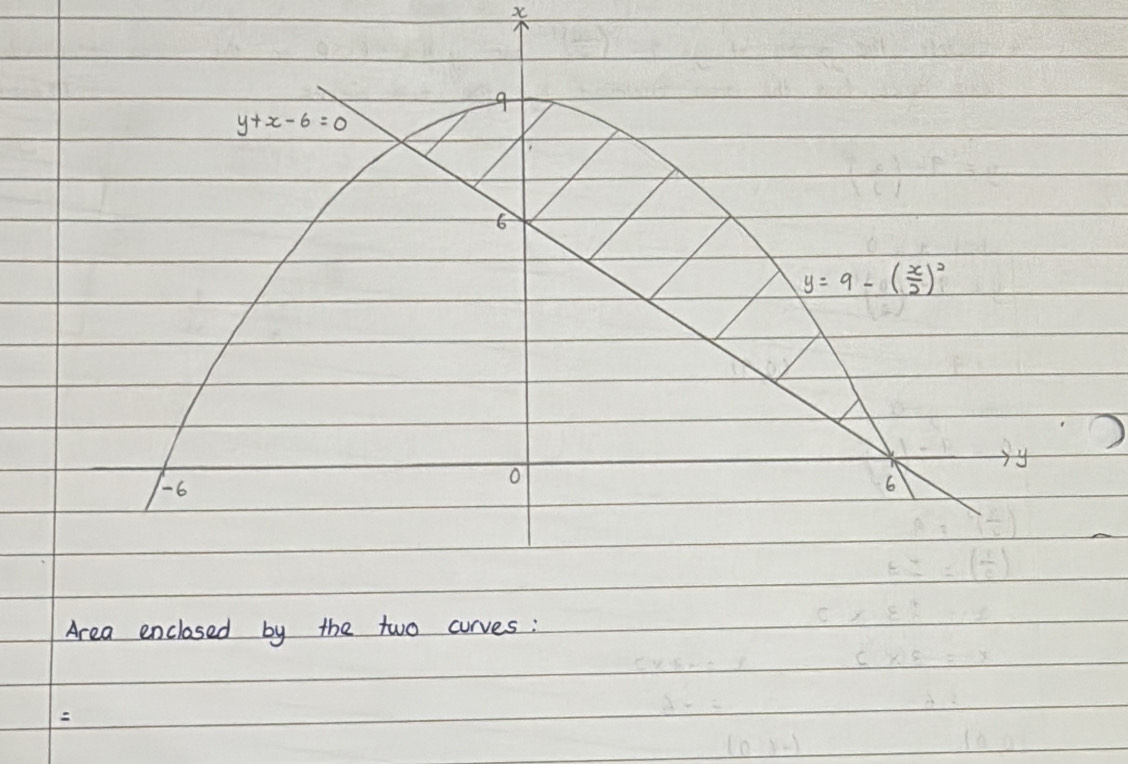 x
9
y+x-6=0
6
y = 9 - (x/2)²
y
-6
0
6
Area enclosed by the two curves :
=